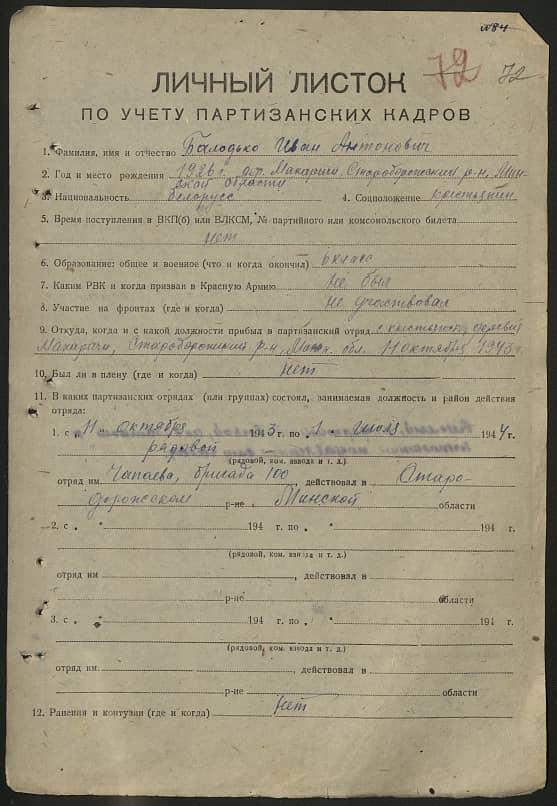 №84
72 72
ЛИЧНЫЙ ЛИСТОК
ПО УЧЕТУ ПАРТИЗАНСКИХ КАДРОВ
1. Фамилия, имя и отчество Балодько Иван Антонович
2. Год и место рождения 1926 г. дер. Макаричи Стародорожский р-н, Мин-
ской области
3. Национальность белорусс 4. Соцположение крестьянин
5. Время поступления в ВКП(б) или ВЛКСМ, № партийного или комсомольского билета
нет
6. Образование: общее и военное (что и когда окончил) 6 класс
7. Каким РВК и когда призван в Красную Армию Не был
8. Участие на фронтах (где и когда) не участвовал
9. Откуда, когда и с какой должности прибыл в партизанский отряд с деревни
Макаричи, Стародорожский р-н, Минск. обл. 11 октября 1943 г.
10. Был ли в плену (где и когда) нет
11. В каких партизанских отрядах (или группах) состоял, занимаемая должность и район действия
отряда:
1. с „11" октября 1943 г. по „1" июля 1944 г.
рядовой
(рядовой, ком. взвода и т. д.)
отряд им. Чапаева, бригада 100, действовал в Старо-
дорожском р-не Минской области
2. с „ " 194 г. по „ " 194 г.
(рядовой, ком. взвода и т. д.)
отряд им. , действовал в
р-не области
3. с „ " 194 г. по „ " 194 г.
(рядовой, ком. взвода и т. д.)
отряд им. , действовал в
р-не области
12. Ранения и контузии (где и когда) Нет